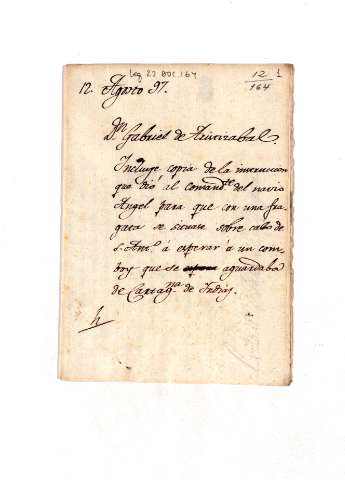 Leg 27 DOC. 164
12 1
164
12. Agosto 97.
Dn Gabriel de Aristizabal.
Incluye copia de la instruccion
que dió al comandte. del navio
Angel para que con una fra
gata se situase sobre cabo de
s. Anto. á esperar á un com
boy que se aguardaba
de Cartagna. de Indias.